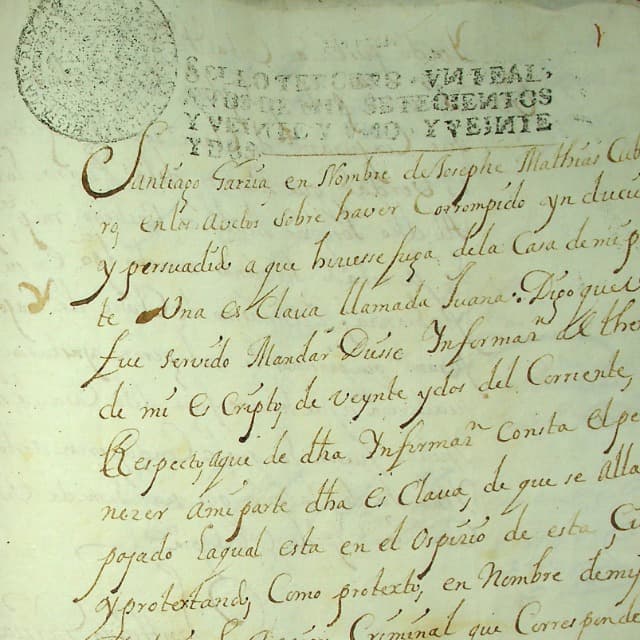 SELLO TERCERO · VN REAL,
AÑOS DE MIL SETECIENTOS
Y VEINTE Y VNO, Y VEINTE
Y DOS
Santiago Garcia en Nombre de Josephe Mathias Cab
ro, en los Avtos sobre haver Corrompido yn ducid
y persuadido a que hiuesse fuga de la Casa de mi p
te Una es Claua llamada Juana: Digo que V
fue servido Mandar Diesse Informaⁿ al the
de mi esCripto, de veynte y dos del Corriente,
Respecto, aque de dha Informaⁿ Consta el pe
nezer a mi parte dha es Claua, de que se alla
pojado laqual esta en el Ospicio de esta, C
y protextando, Como protexto, en Nombre de mi p
Criminal que Corresponde